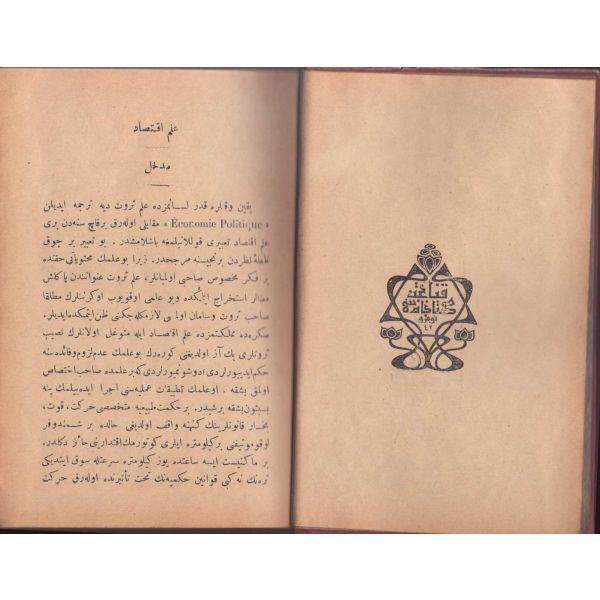 علم اقتصاد
مدخل
یقین وقتلره قدر لسانمزده علم ثروت دیه ترجمه ایدیلن
« Économie Politique » مقابلی اوله‌رق برقاچ سنه‌دن بری
علم اقتصاد تعبیری قوللانیلمغه باشلامشدر. بو تعبیر بر چوق
نقطهٔ نظردن برنجیسنه مرجحدر. زیرا بوعلمك محتویاتی حقنده
بر فكر مخصوص صاحبی اولمیانلر، علم ثروت عنوانندن یاكلش
معنالر استخراج ایتمكده وبو علمی اوقویوب اوكرنلرك مطلقا
صاحب ثروت وسامان اولمسی لازمكله‌جكنی ظن ایتمكده‌ایدیلر.
صكره‌ده مملكتمزده علم اقتصاد ایله متوغل اولانلرك نصیب
ثروتلری پك آز اولدیغنی كوره‌رك بوعلمك عدم‌لزوم وفائده‌سنه
حكم‌ایدیورلردی. دوشونمیورلردی‌كه بر علمده صاحب اختصاص
اولمق بشقه ، اوعلمك تطبیقات عملیه‌سنی اجرا ایده‌بیلمك ینه
بسبتون‌بشقه برشیدر. بر حكمت طبیعیه متخصصی حركت، قوت،
بخار قانونلرینك كنهنه واقف اولدیغی حالده بر شمندوفر
لوقوموتیفی بركیلومتره ایلری كوتورمك اقتدارینی حائز دكلدر.
بر ماكینیست ایسه ساعتده یوز كیلومتره سرعتله سوق ایتدیكی
ترنك نه كبی قوانین حكمیه‌نك تحت تأثیرنده اوله‌رق حركت
قناعت
كتابخانه‌سی
نومرو
٤٢